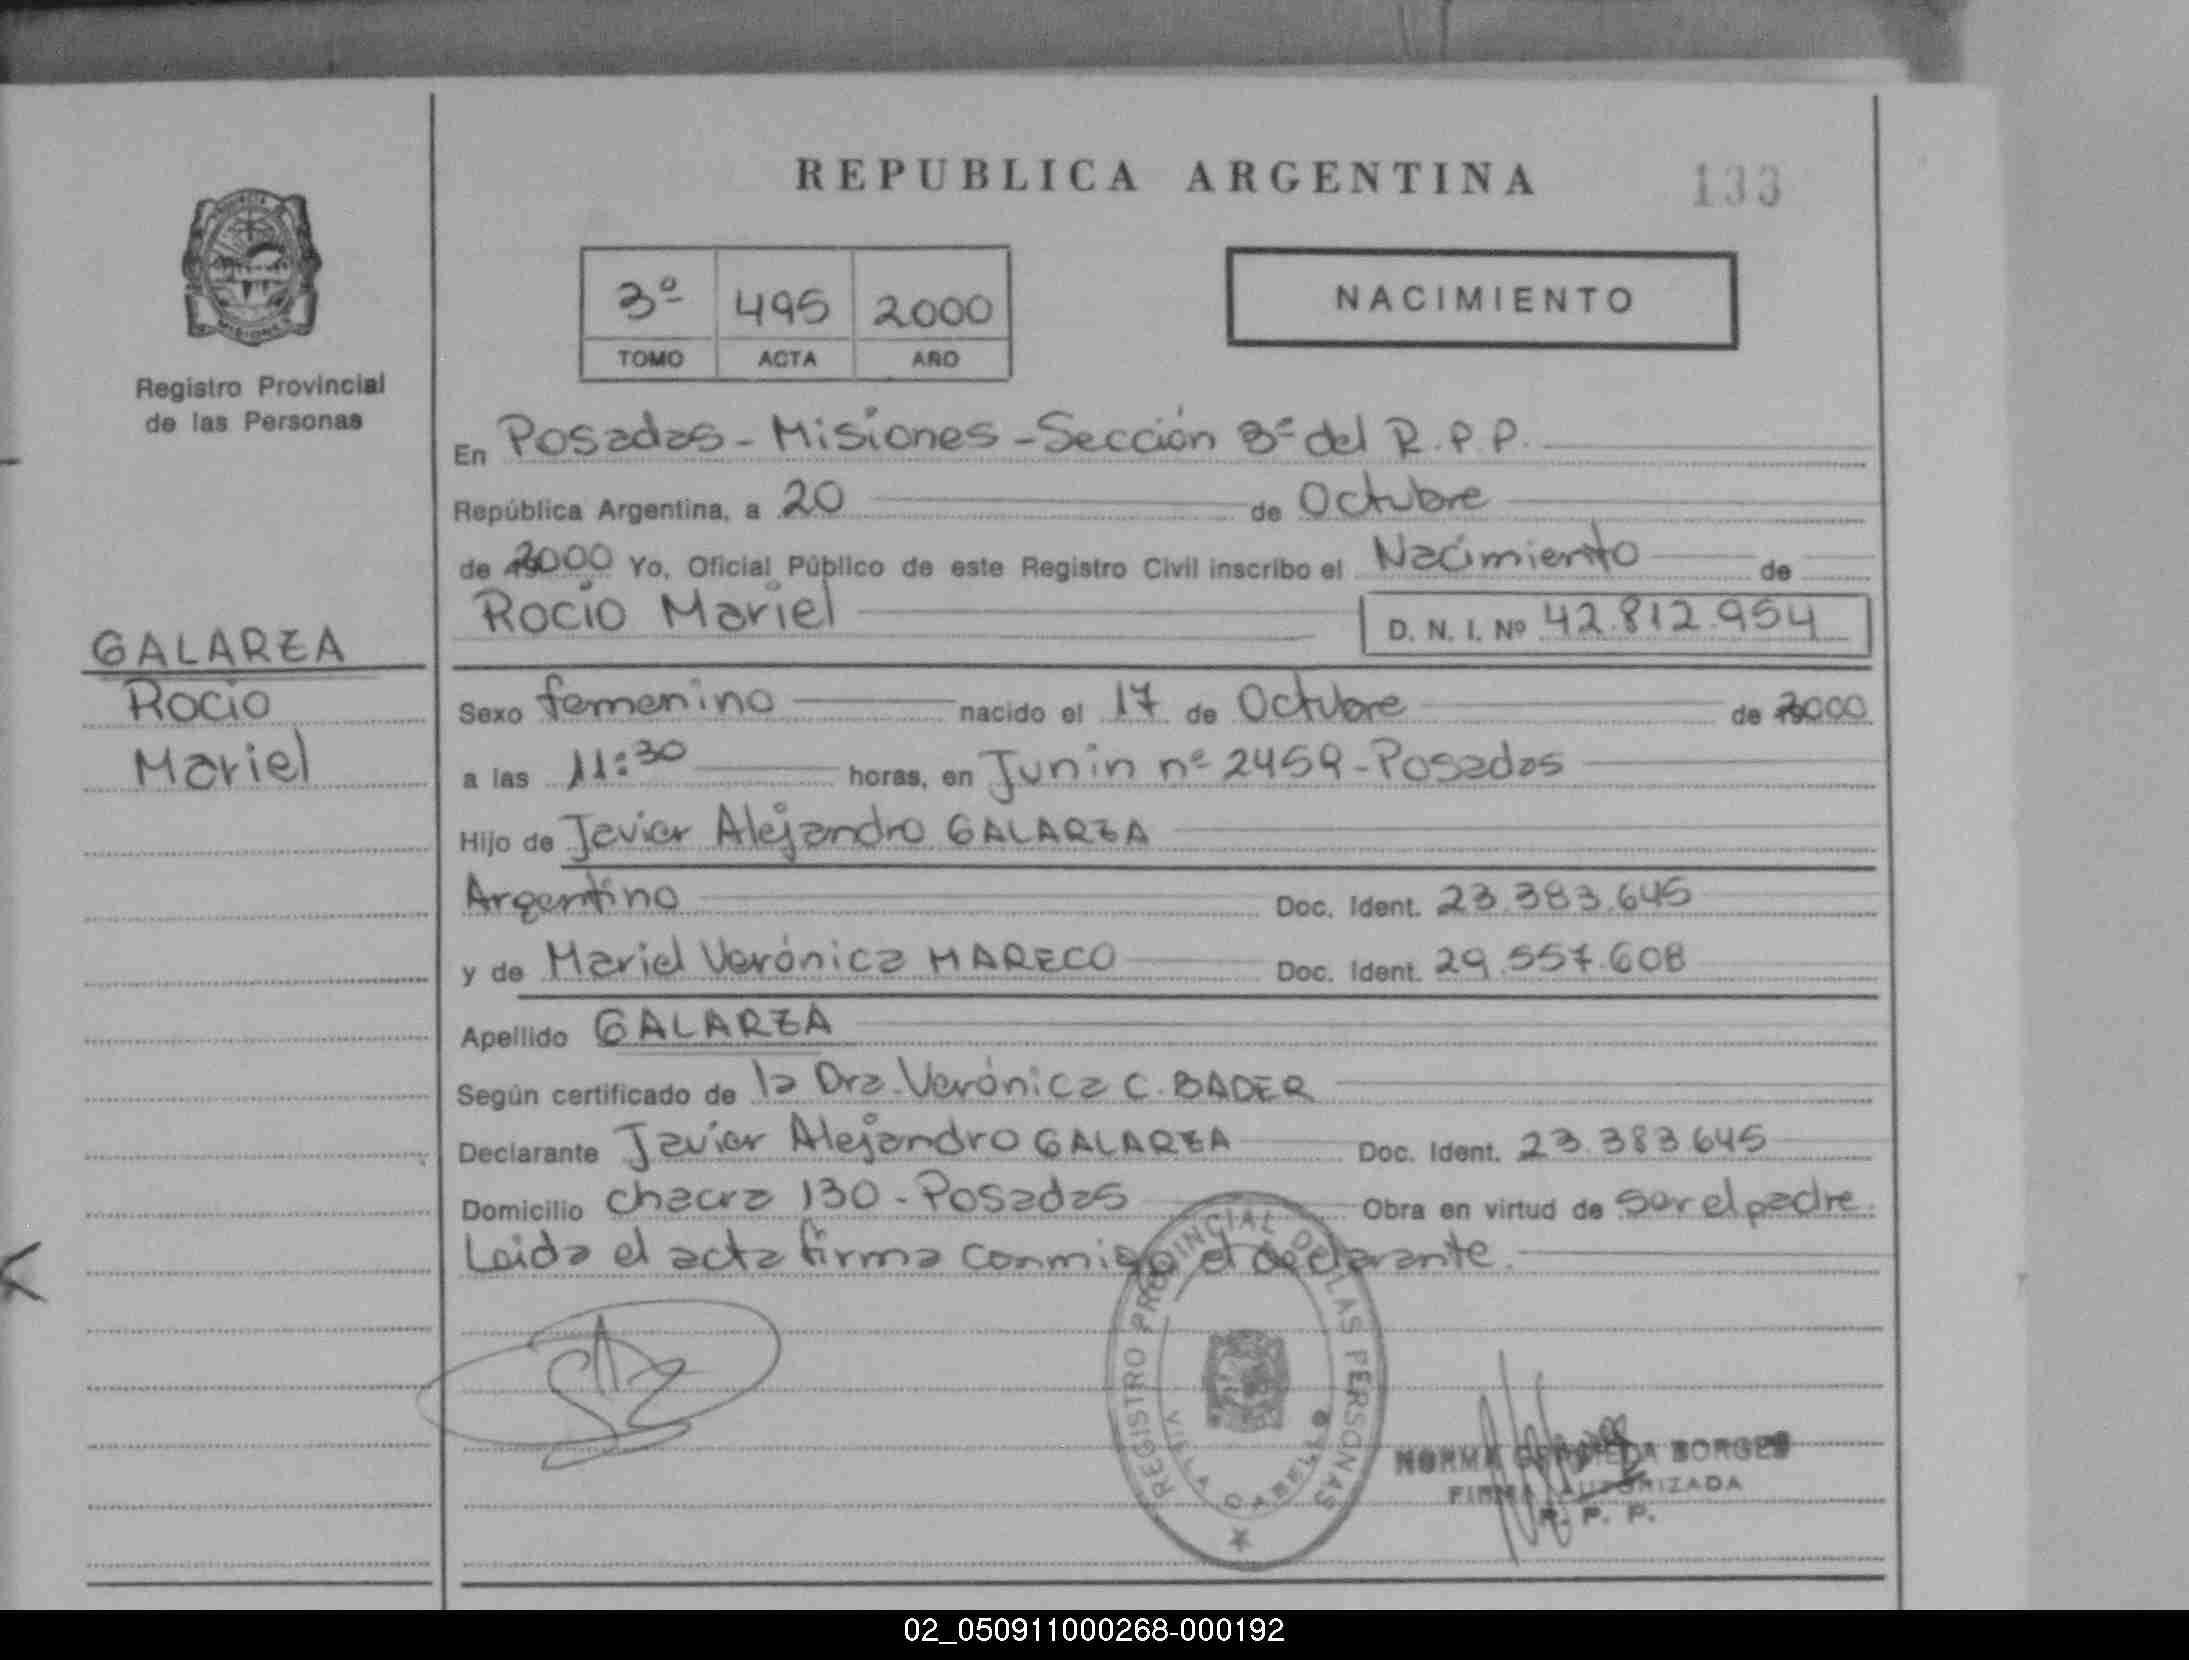 REPUBLICA ARGENTINA
133
3º 495 2000
TOMO ACTA AÑO
NACIMIENTO
Registro Provincial
de las Personas
GALARZA
Rocio
Mariel
En Posadas - Misiones - Sección 3ª del R.P.P.
República Argentina, a 20 de Octubre
de 2000 Yo, Oficial Público de este Registro Civil inscribo el Nacimiento de
Rocio Mariel D. N. I. Nº 42.812.954
Sexo femenino nacido el 17 de Octubre de 2000
a las 11:30 horas, en Junin nº 2459 - Posadas
Hijo de Javier Alejandro GALARZA
Argentino Doc. Ident. 23.383.645
y de Mariel Verónica MARECO Doc. Ident. 29.557.608
Apellido GALARZA
Según certificado de la Dra. Verónica C. BADER
Declarante Javier Alejandro GALARZA Doc. Ident. 23.383.645
Domicilio chacra 130 - Posadas Obra en virtud de ser el padre.
Leida el acta firma conmigo el declarante.
REGISTRO PROVINCIAL DE LAS PERSONAS
NORMA BORGES
FIRMA AUTORIZADA
R. P. P.
02_050911000268-000192